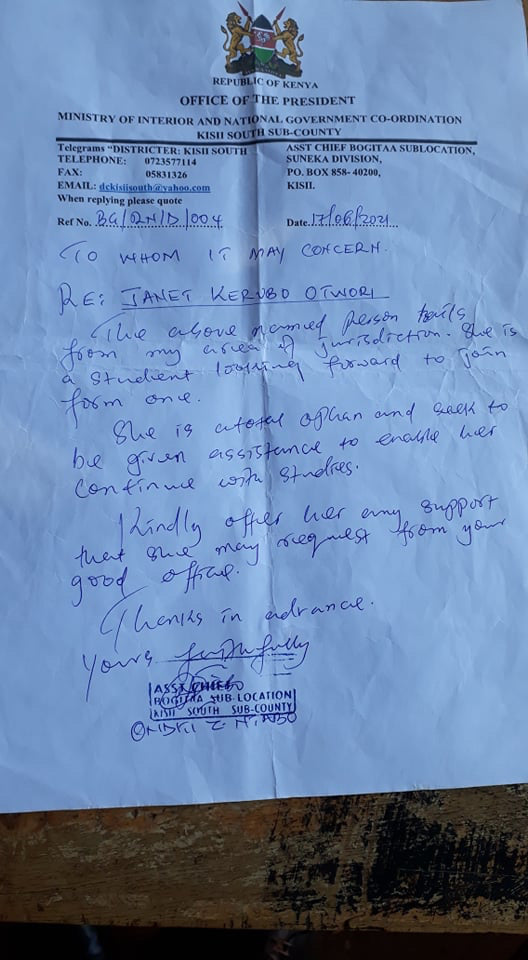 REPUBLIC OF KENYA
OFFICE OF THE PRESIDENT
MINISTRY OF INTERIOR AND NATIONAL GOVERNMENT CO-ORDINATION
KISII SOUTH SUB-COUNTY
Telegrams "DISTRICTER: KISII SOUTH
TELEPHONE: 0723577114
FAX: 05831326
EMAIL: dckisiisouth@yahoo.com
When replying please quote
ASST CHIEF BOGITAA SUBLOCATION,
SUNEKA DIVISION,
PO. BOX 858- 40200,
KISII.
Ref No. BG/RN/D/004 Date 17/06/2021
TO WHOM IT MAY CONCERN.
RE: JANET KERUBO OTWORI
The above named person hails
from my area of jurisdiction. She is
a student looking forward to join
form one.
She is a total ophan and seek to
be given assistance to enable her
continue with studies.
Kindly offer her any support
that she may request from your
good office.
Thanks in advance.
Yours faithfully
ASST. CHIEF
BOGITAA SUB-LOCATION
KISII SOUTH SUB-COUNTY